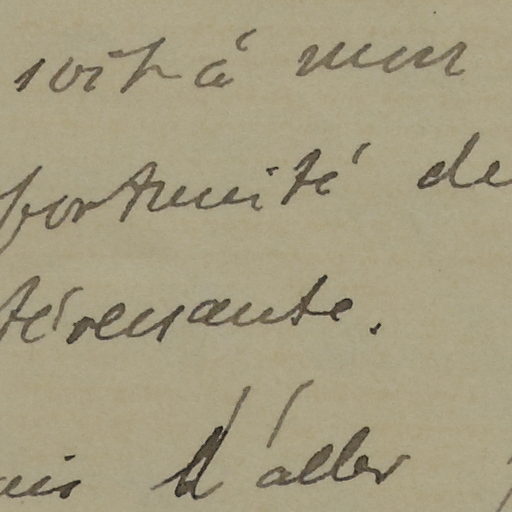 soit à mon
portunité de
téressante.
ais d'aller